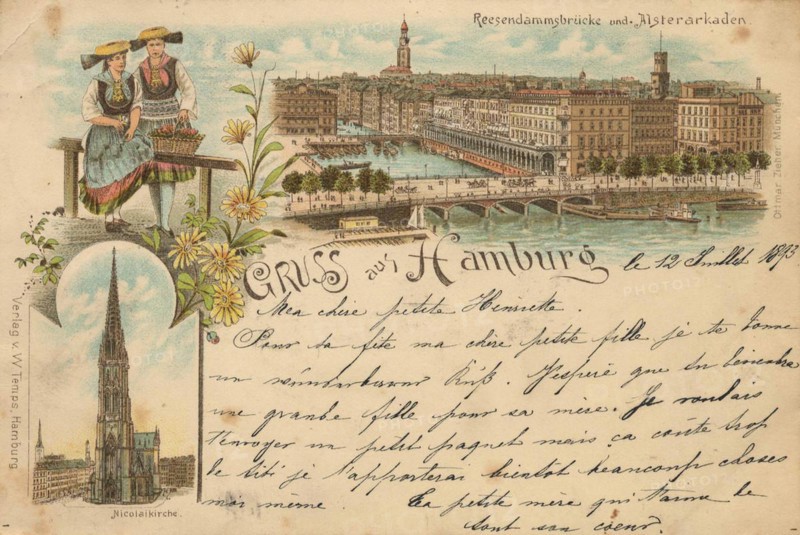 Reesendammsbrücke und Alsterarkaden.
GRUSS aus Hamburg
le 12 Juillet 1893
Ma chère petite Henriette.
Pour ta fête ma chère petite fille je te donne
un wunderbarer Kuß. J'espère que tu deviendra
une grande fille pour sa mère. Je voulais
t'envoyer un petit paquet mais ça coûte trop
je l'apporterai bientôt beaucoup choses
moi même. Ta petite mère qui t'aime de
tout son coeur.
Nicolaikirche.
Verlag v. W. Temps, Hamburg
Ottmar Zieher, München